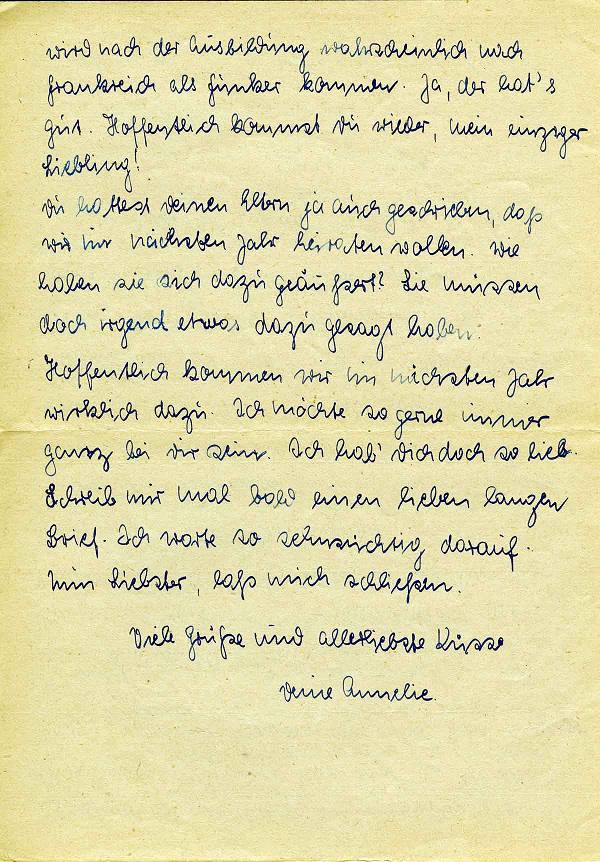 wird nach der Ausbildung wahrscheinlich nach
Frankreich als Funker kommen. Ja, der hat's
gut. Hoffentlich kommst Du wieder, mein einziger
Liebling!
Du hattest Deinen Eltern ja auch geschrieben, daß
wir im nächsten Jahr heiraten wollen. Wie
haben sie sich dazu geäußert? Sie müssen
doch irgend etwas dazu gesagt haben.
Hoffentlich kommen wir im nächsten Jahr
wirklich dazu. Ich möchte so gerne immer
ganz bei Dir sein. Ich hab' Dich doch so lieb.
Schreib mir mal bald einen lieben langen
Brief. Ich warte so sehnsüchtig darauf.
Mein Liebster, laß mich schließen.
Viele Grüße und allerliebste Küsse
Deine Annelie.